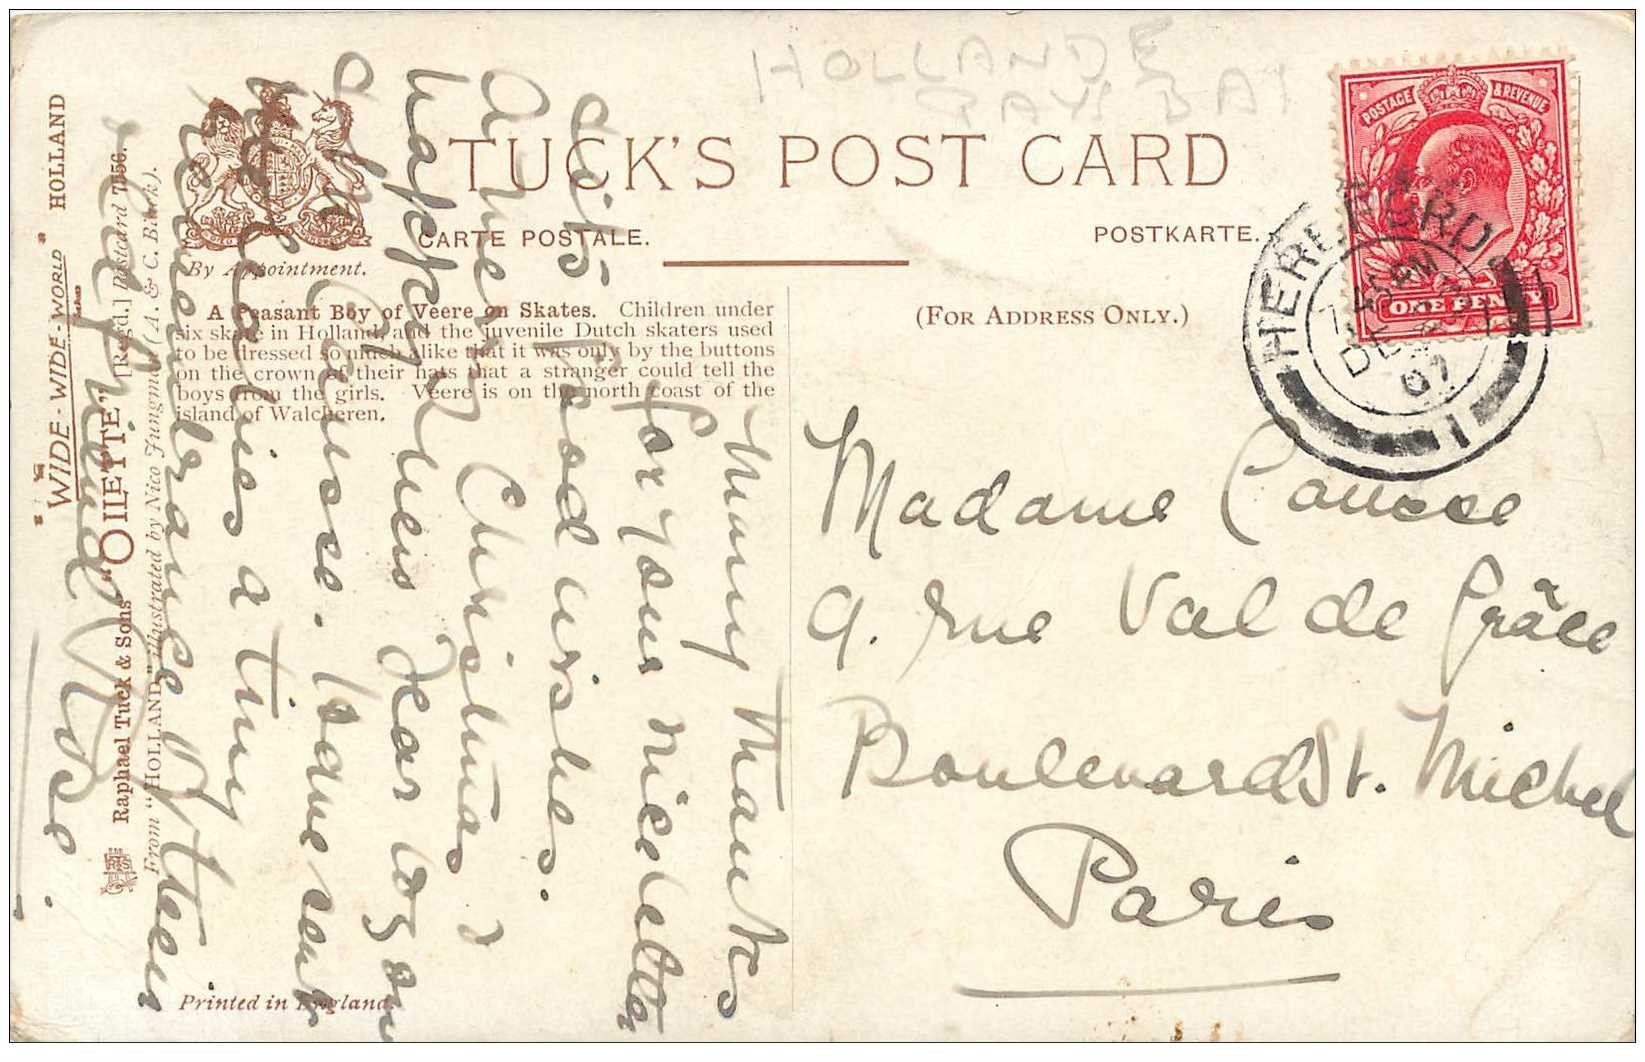 HOLLANDE
PAYS BAS
TUCK'S POST CARD
CARTE POSTALE.
POSTKARTE.
By Appointment.
(FOR ADDRESS ONLY.)
A Peasant Boy of Veere on Skates. Children under
six skate in Holland, and the juvenile Dutch skaters used
to be dressed so much alike that it was only by the buttons
on the crown of their hats that a stranger could tell the
boys from the girls. Veere is on the north coast of the
island of Walcheren.
POSTAGE & REVENUE
ONE PENNY
HEREFORD
DE
07
1
Madame Causse
9. rue Val de Grâce
Boulevard St. Michel
Paris
Many thanks
for your nice letter
its good wishes.
A merry Christmas &
happy New Year
Causse. have sent
a tiny
remembrance
friend
Rose.
"WIDE-WIDE-WORLD" HOLLAND
Raphael Tuck & Sons' "OILETTE" [Regd.] Postcard 7556.
From "HOLLAND" illustrated by Nico Jungman (A. & C. Black).
Printed in England.